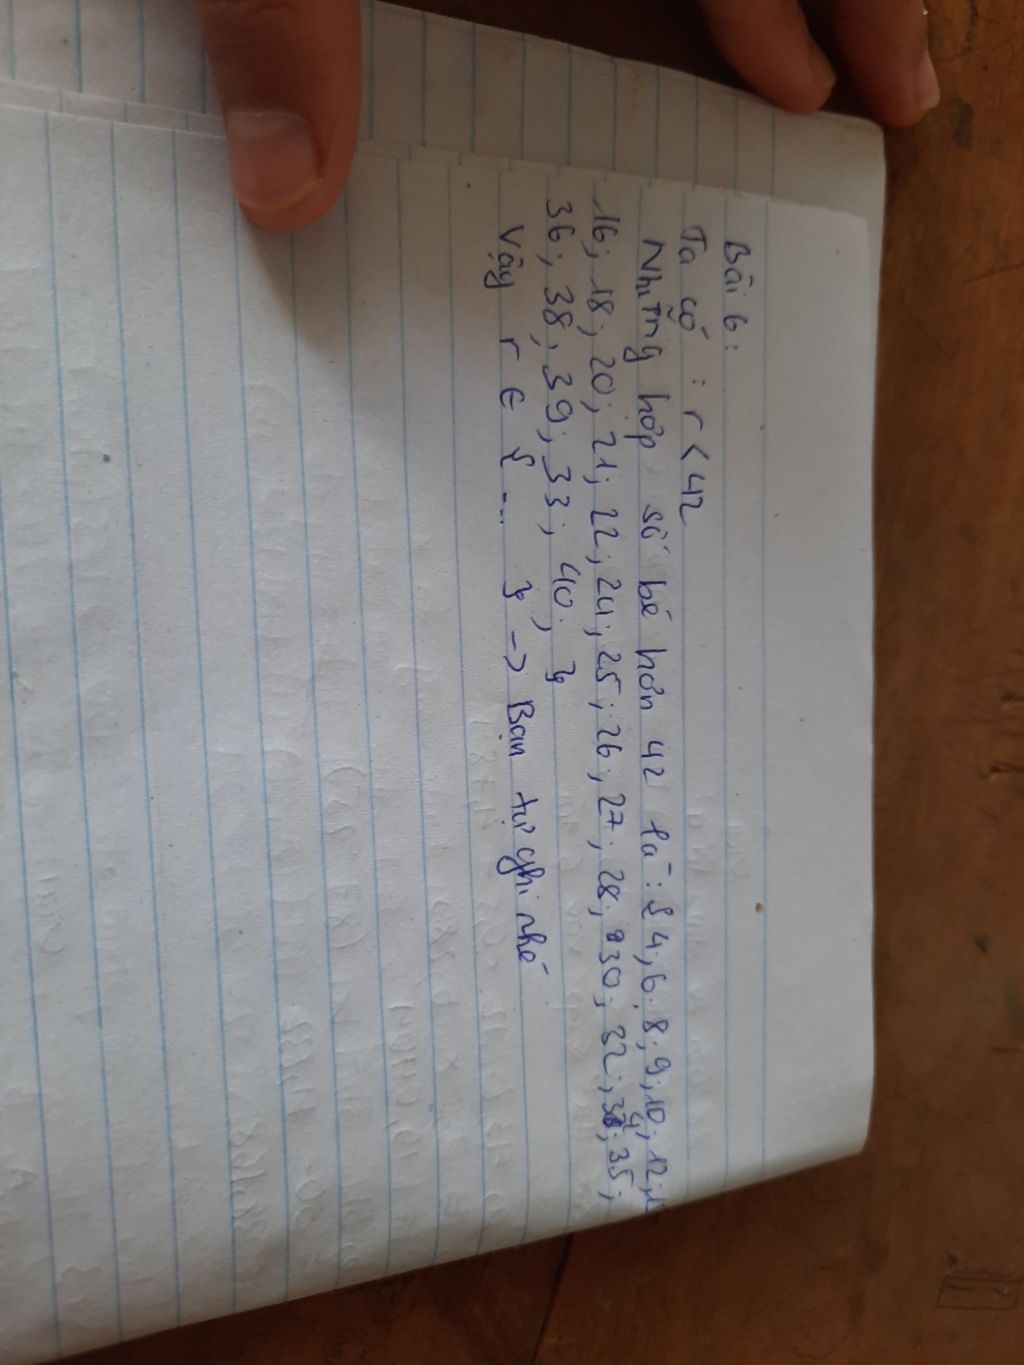 Bài 6:
Ta có : r < 42
Những hợp số bé hơn 42 là : { 4; 6; 8; 9; 10; 12;
16; 18; 20; 21; 22; 24; 25; 26; 27; 28; 30; 32; 34; 35;
36; 38; 39; 33; 40; }
Vậy r ∈ { ... } -> Bạn tự ghi nhé